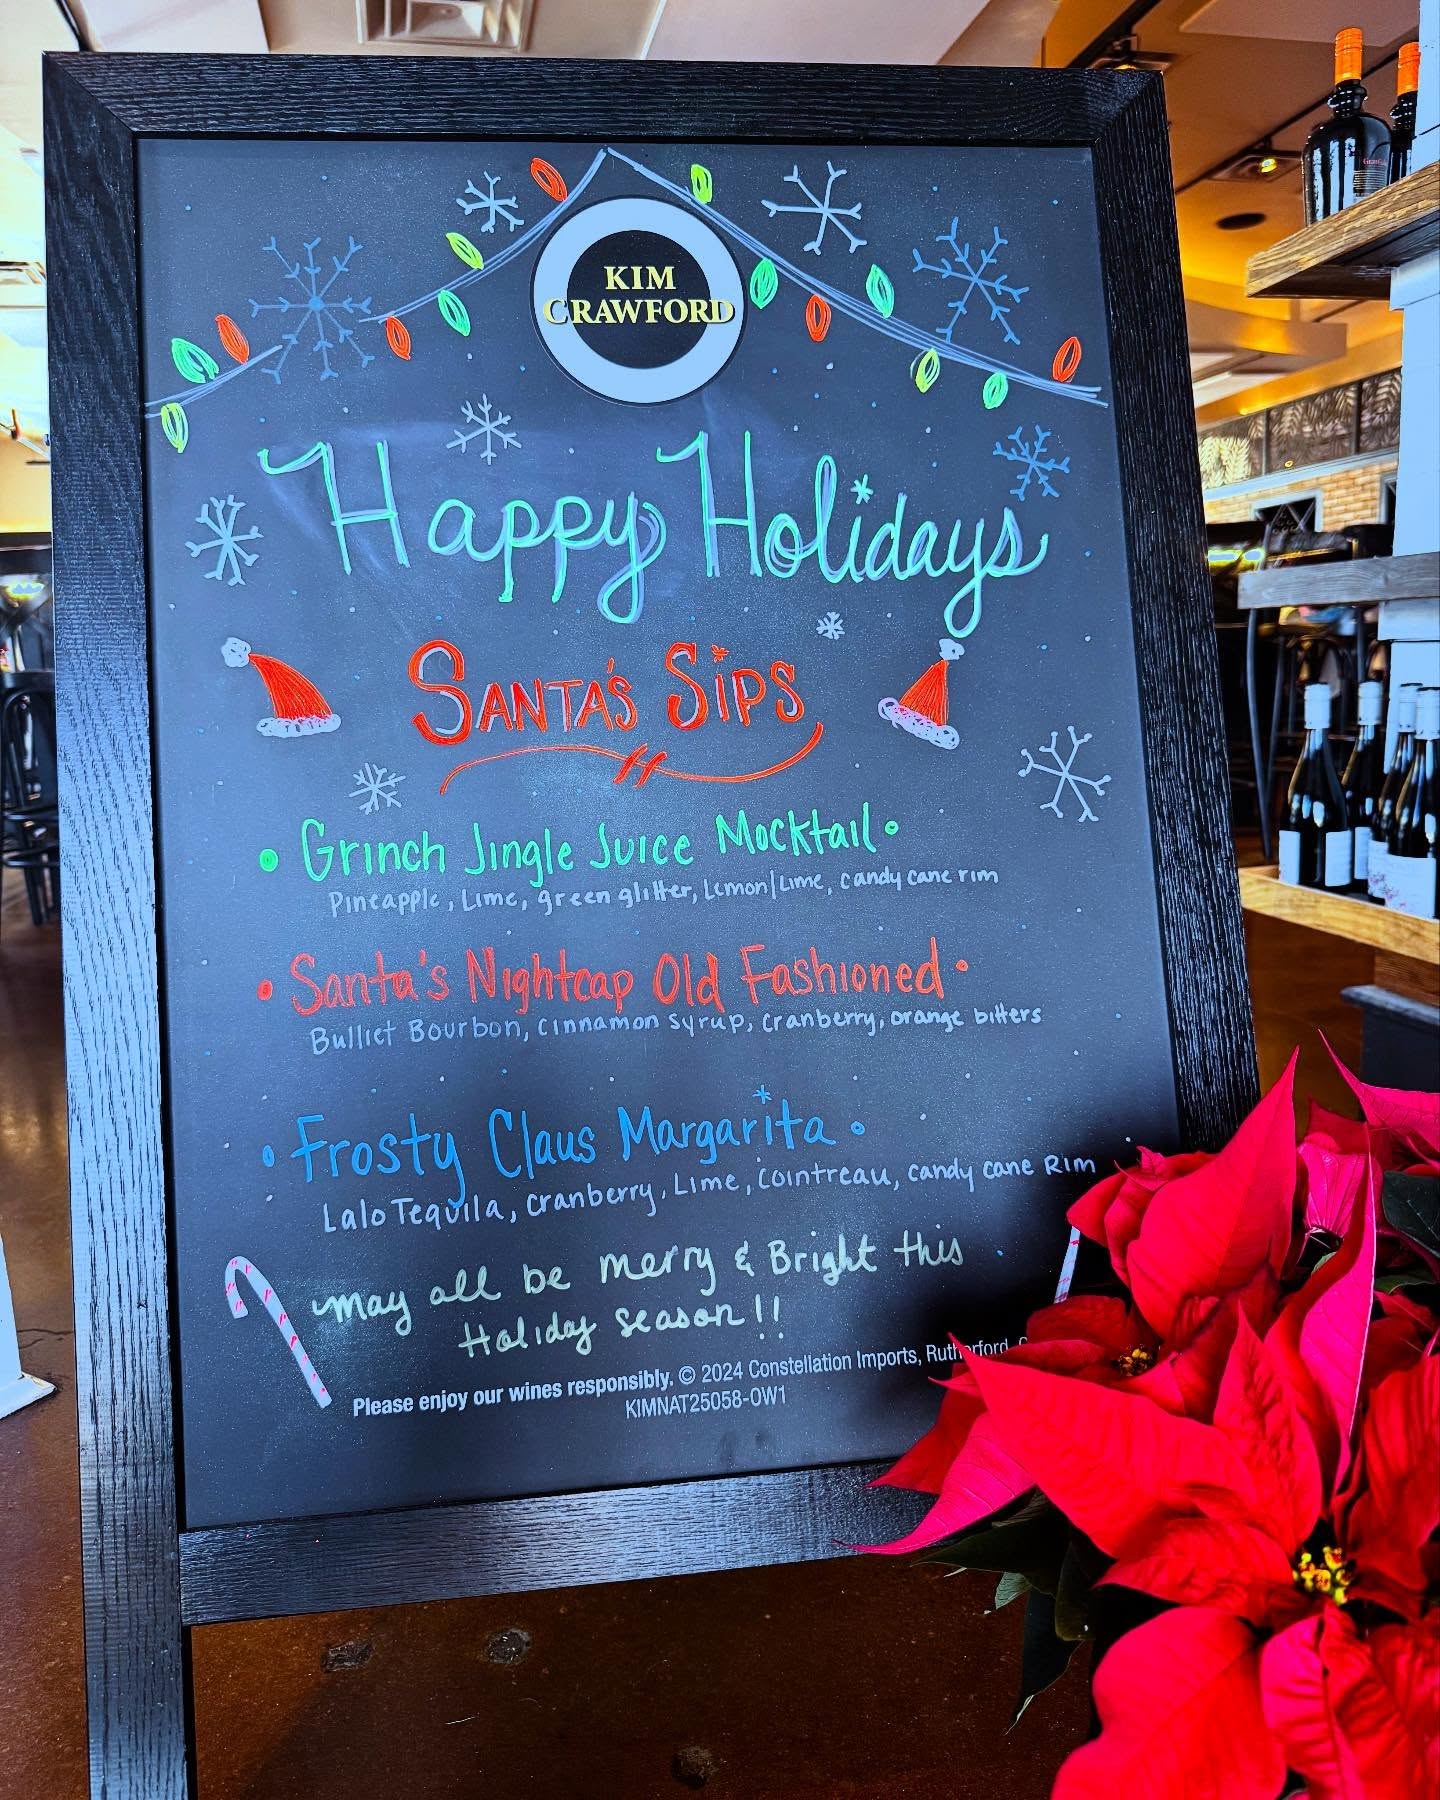 KIM
CRAWFORD
Happy Holidays
SANTA'S SIPS
• Grinch Jingle Juice Mocktail •
Pineapple, Lime, green glitter, Lemon/Lime, candy cane rim
• Santa's Nightcap Old Fashioned •
Bulliet Bourbon, cinnamon syrup, cranberry, orange bitters
• Frosty Claus Margarita •
Lalo Tequila, cranberry, Lime, Cointreau, candy cane Rim
May all be merry & Bright this
Holiday season!!
Please enjoy our wines responsibly. © 2024 Constellation Imports, Rutherford,
KIMNAT25058-OW1